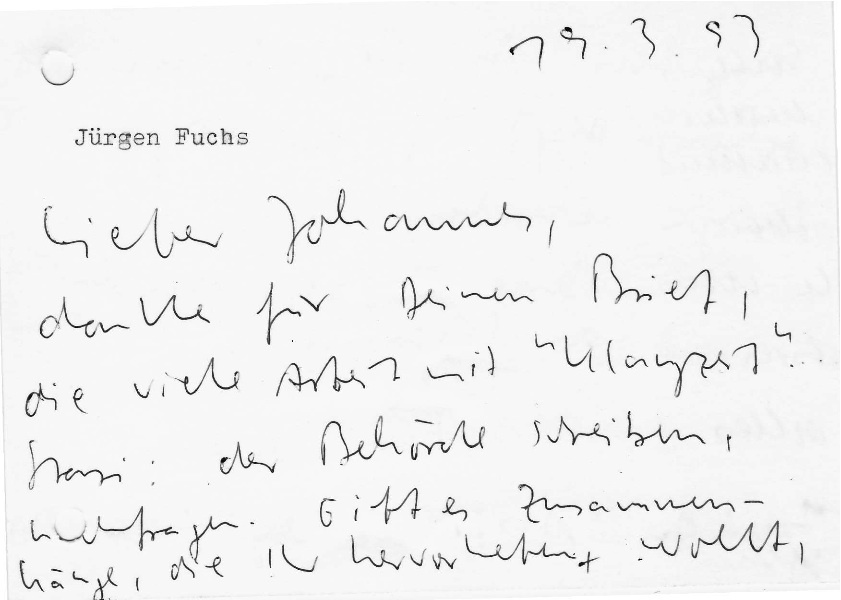 19.3.93
Jürgen Fuchs
Lieber Johannes,
danke für Deinen Brief,
die viele Arbeit mit "Klangzeit".
Stasi: der Behörde schreiben,
nachfragen. Gibt es Zusammen-
hänge, die Ihr hervorheben wollt,